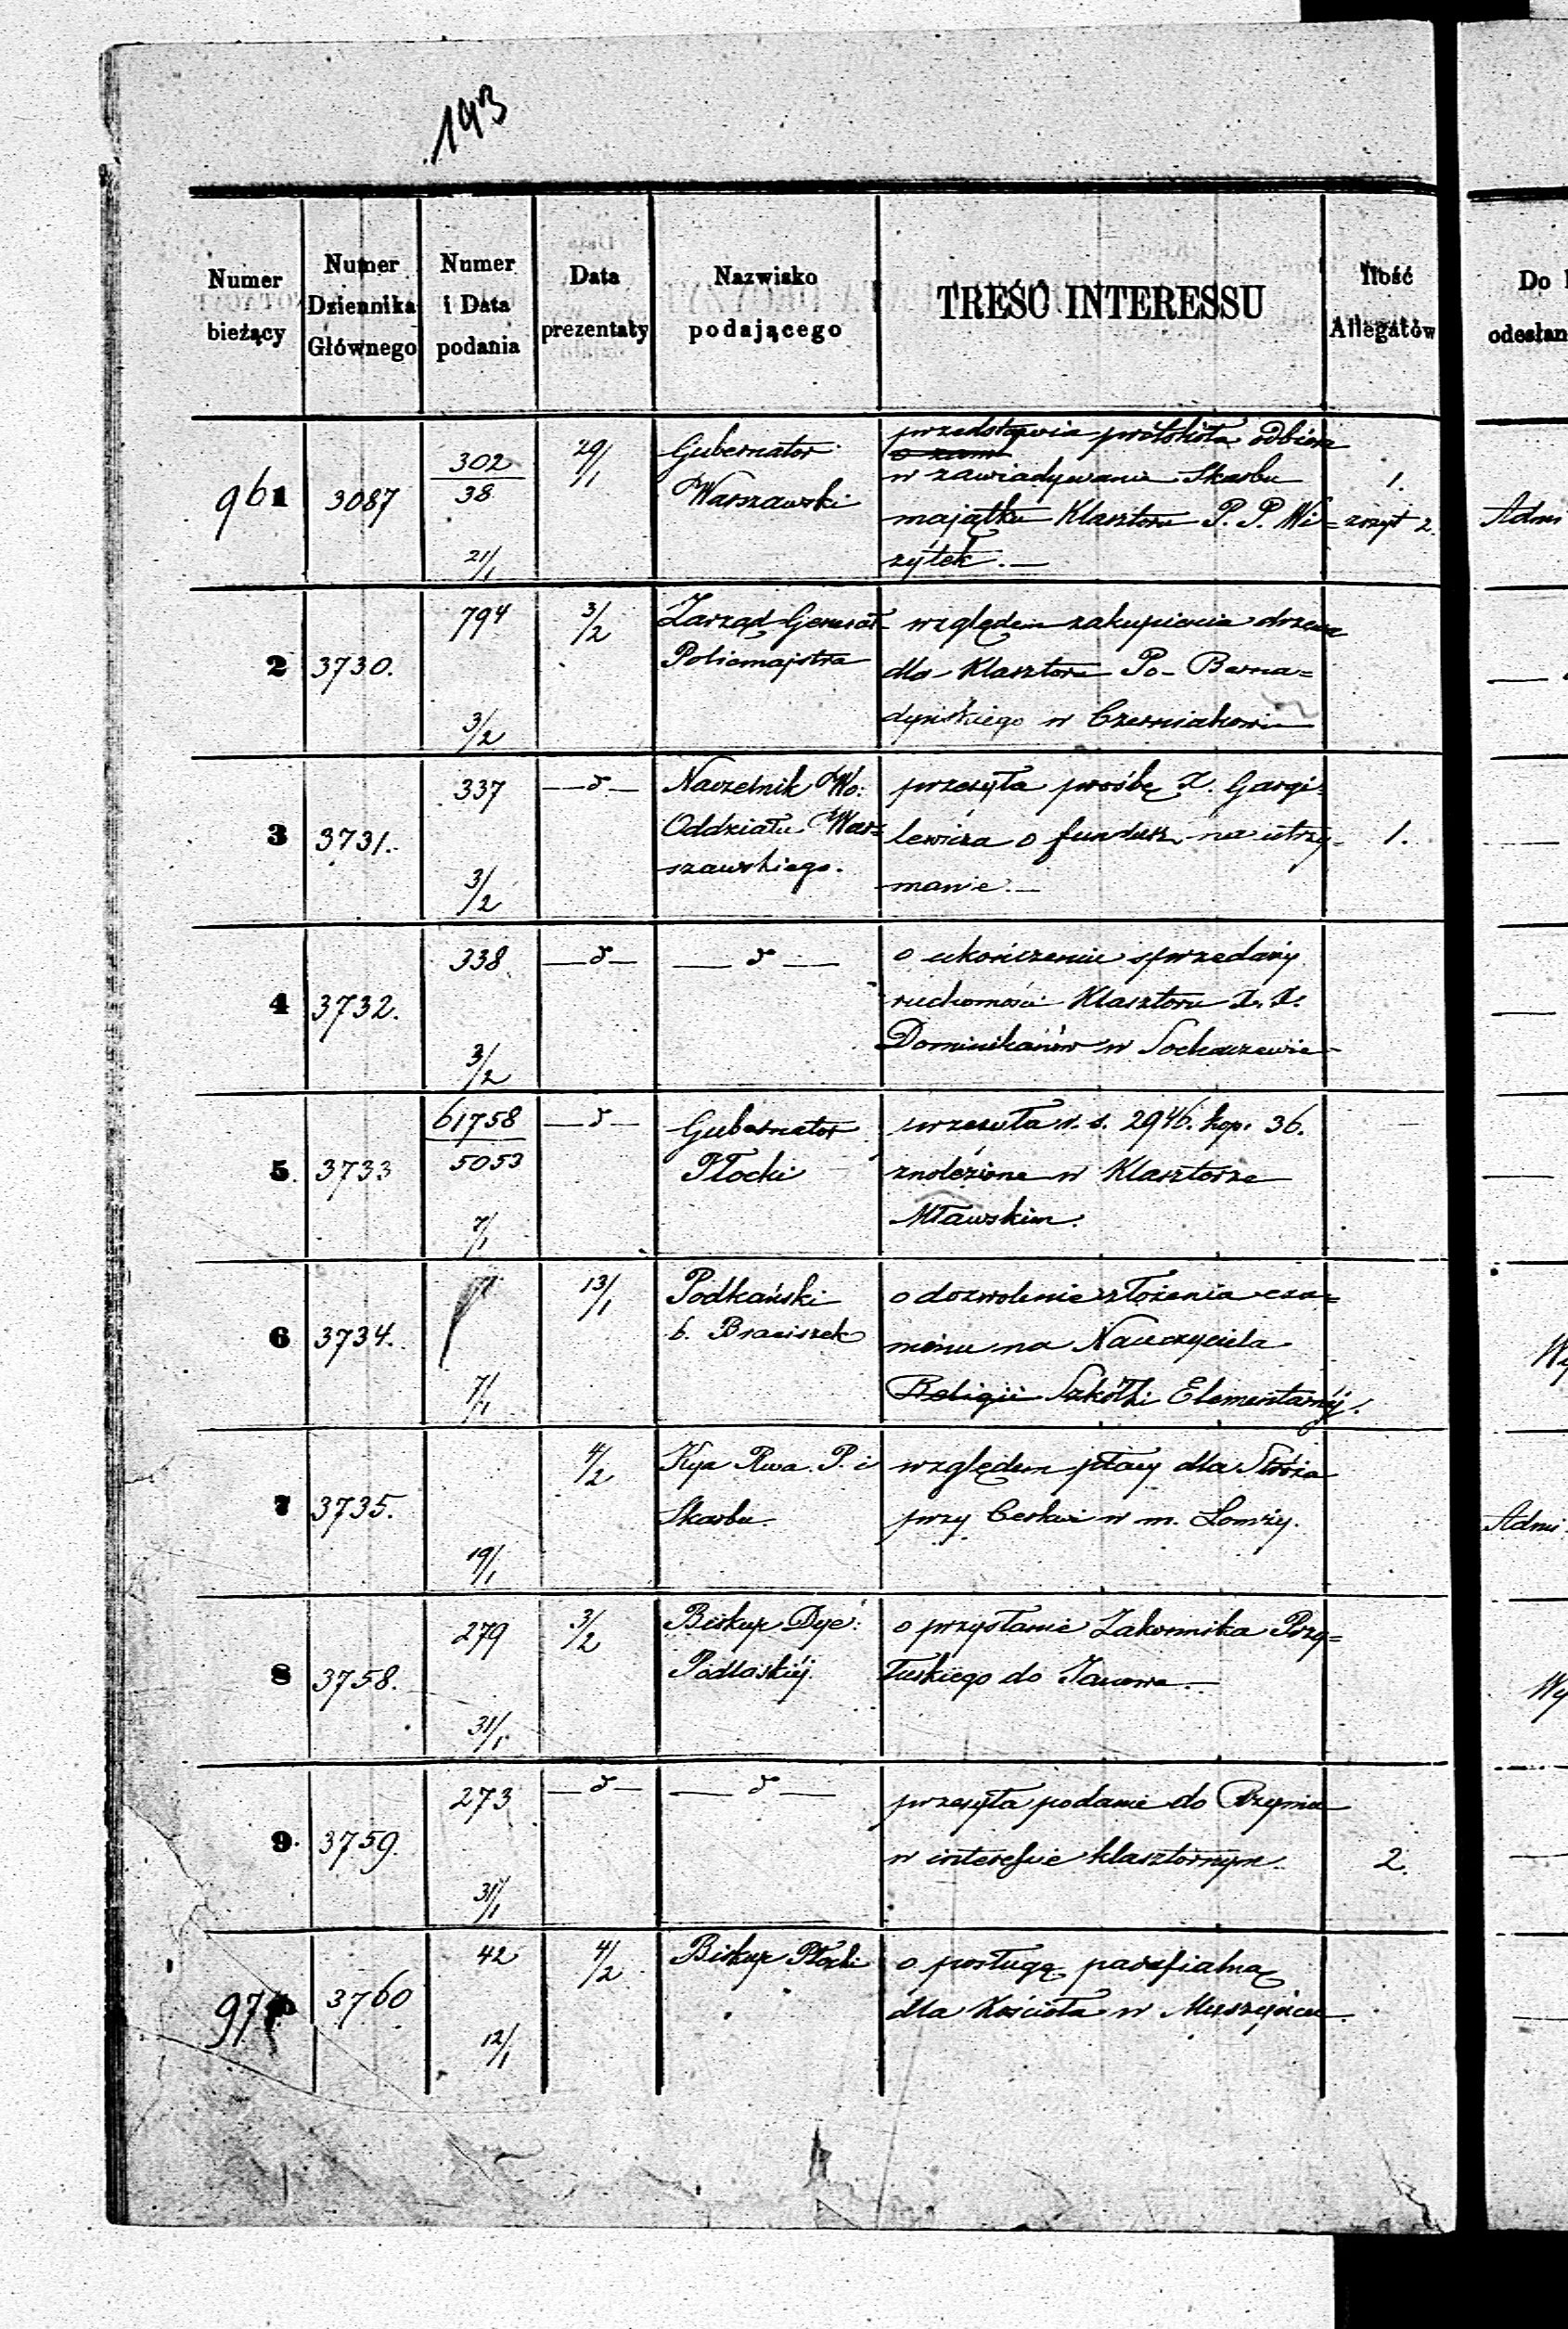 193
Numer bieżący
Numer Dziennika Głównego
Numer i Data podania
Data prezentaty
Nazwisko podającego
TREŚĆ INTERESSU
Ilość Allegatów
Do
odesłan
961 3087 302/38 21/1 29/1
Gubernator
Warszawski
przedstawia protokóła odbioru
w zawiadywanie Skarbu
majątku Klasztoru P. P. Wi=
zytek.—
1.
zszyt 2.
Adm
2 3730. 794 3/2 3/2
Zarząd Generał
Policmajstra
względem zakupienia drzewa
dla Klasztoru Po-Berna=
dyńskiego w Czerniakowie
3 3731. 337 3/2 —d—
Naczelnik Wo:
Oddziału War=
szawskiego.
przesyła prośbę X. Gargi=
lewicza o fundusz na utrzy=
manie.—
1.
4 3732. 338 3/2 —d— —d—
o ukończeniu sprzedaży
ruchomości Klasztoru X. X.
Dominikanów w Sochaczewie
5. 3733 61758/5053 7/1 —d—
Gubernator
Płocki
przesyła r. s. 2946. kop. 36.
znalezione w Klasztorze
Mławskim.
6 3734. 7/1 13/1
Podkański
b. Braciszek
o dozwolenie złożenia exa=
minu na Nauczyciela
Religii Szkółki Elementarnéj.
Wy
7 3735. 19/1 4/2
Kya Rwa. P. i
Skarbu.
względem płacy dla Stróża
przy Cerkwi w m. Łomży.
Adm
8 3758. 279 31/1 3/2
Biskup Dyé:
Podlaskiéj
o przysłanie Zakonnika Przy=
łuskiego do Janowa.—
Wy
9. 3759. 273 31/1 —d— —d—
przesyła podanie do Rzymu
w interesie klasztornym.
2.
970 3760 42 12/1 4/2
Biskup Płocki
o posługę parafialną
dla Kościoła w Myszyńcu.